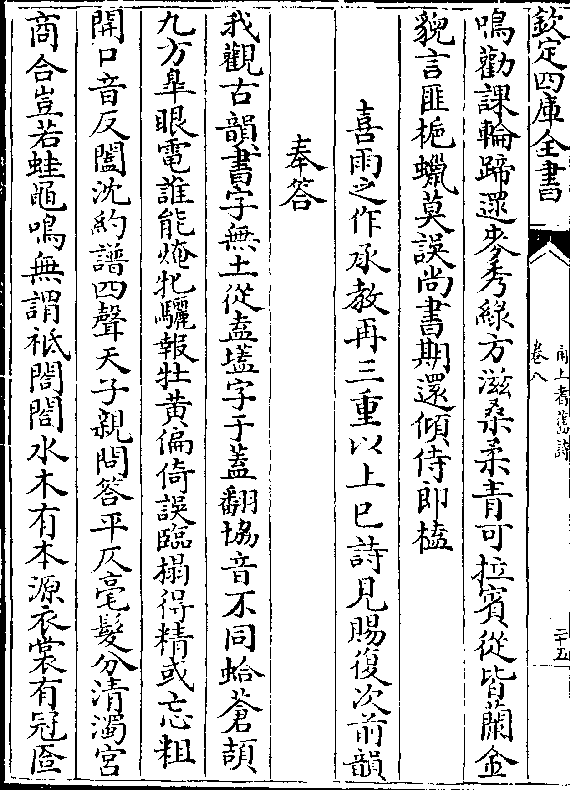 欽定四庫全書
卷八
甬上耆舊詩
二十五
鳴勸課輪蹄還麥秀綠方滋桑柔青可拉賓從皆蘭金
貌言匪梔蠟莫誤尚書期還傾侍郎榼
喜雨之作承教再三重以上巳詩見賜復次前韻
奉答
我觀古韻書字無土從盍壒字于蓋翻協音不同蛤蒼頡
九方臯眼電誰能㷈牝驪報牡黄偏倚誤臨搨得精或忘粗
開口音反闔沈約譜四聲天子親問答平仄毫髮分清濁宫
商合豈若蛙黽鳴無謂祗閤閤水木有本源衣裳有冠匼